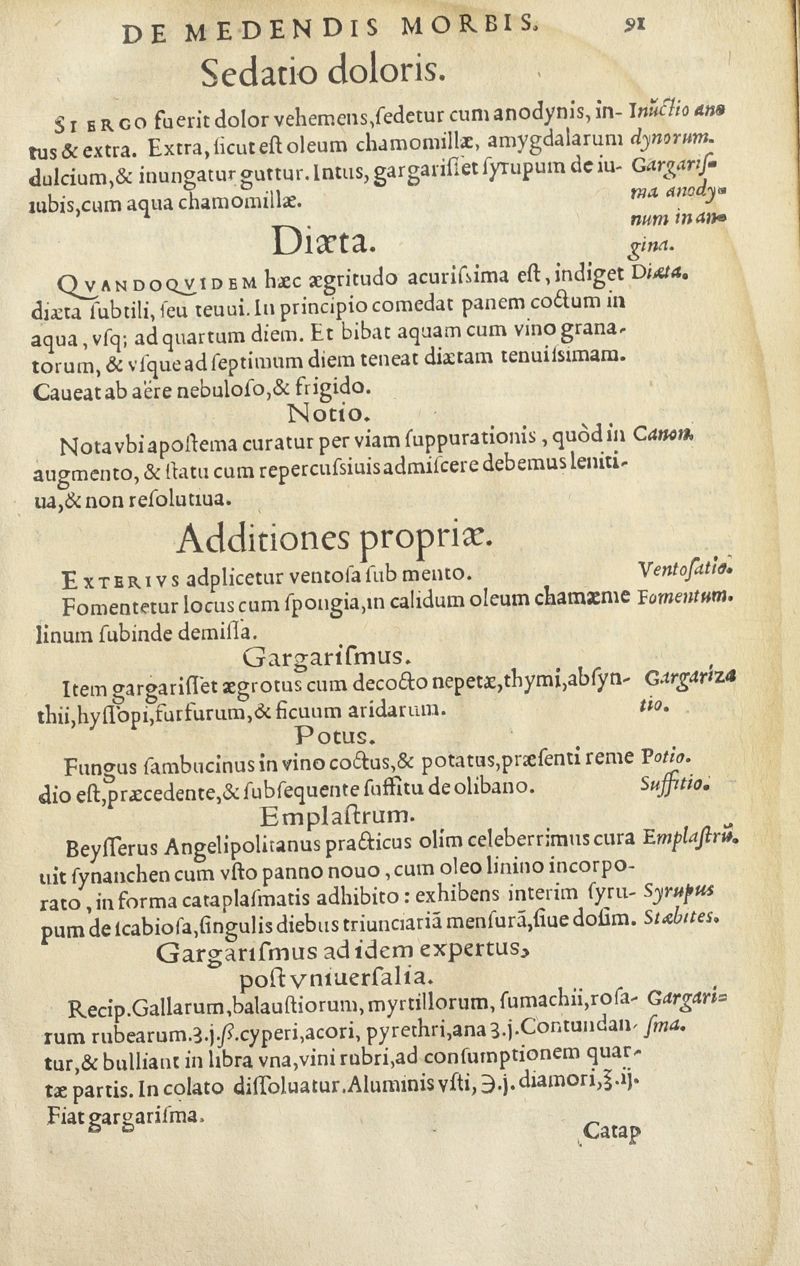 DE MEDENDIS MORBIS. 91
Sedatio doloris.
SI ERGO fuerit dolor vehemens,ſedetur cum anodynis, in- Inūctio ano
tus & extra. Extra, ſicut eſt oleum chamomillæ, amygdalarum dynorum.
dulcium,& inungatur guttur. Intus, gargariſſet ſyrupum de iu- Gargariſ-
iubis,cum aqua chamomillæ. ma anody-
num in an-
gina.
Diæta.
QVANDOQVIDEM hæc ægritudo acuriſsima eſt, indiget Diæta.
diæta ſubtili, ſeu tenui. In principio comedat panem coctum in
aqua, vſq; ad quartum diem. Et bibat aquam cum vino grana-
torum, & vſque ad ſeptimum diem teneat diætam tenuiſsimam.
Caueat ab aëre nebuloſo,& frigido.
Notio.
Nota vbi apoſtema curatur per viam ſuppurationis, quòd in Canon.
augmento, & ſtatu cum repercuſsiuis admiſcere debemus leniti-
ua,& non reſolutiua.
Additiones propriæ.
EXTERIVS adplicetur ventoſa ſub mento. Ventoſatio.
Fomentetur locus cum ſpongia,in calidum oleum chamæme Fomentum.
linum ſubinde demiſſa.
Gargariſmus.
Item gargariſſet ægrotus cum decocto nepetæ,thymi,abſyn- Gargariza
thii,hyſſopi,furfurum,& ficuum aridarum. tio.
Potus.
Fungus ſambucinus in vino coctus,& potatus,præſenti reme Potio.
dio eſt,præcedente,& ſubſequente ſuffitu de olibano. Suffitio.
Emplaſtrum.
Beyſſerus Angelipolitanus practicus olim celeberrimus cura Emplaſtrū.
uit ſynanchen cum vſto panno nouo, cum oleo linino incorpo-
rato, in forma cataplaſmatis adhibito: exhibens interim ſyru- Syrupus
pum de ſcabioſa,ſingulis diebus triunciariā menſurā,ſiue doſim. Stæbites.
Gargariſmus ad idem expertus,
poſt vniuerſalia.
Recip.Gallarum,balauſtiorum,myrtillorum, ſumachii,roſa- Gargari-
rum rubearum.ʒ.j.ß.cyperi,acori, pyrethri,ana ʒ.j.Contundan- ſma.
tur,& bulliant in libra vna,vini rubri,ad conſumptionem quar-
tæ partis. In colato diſſoluatur.Aluminis vſti, ℈.j.diamori,℥.ij.
Fiat gargariſma.
Catap